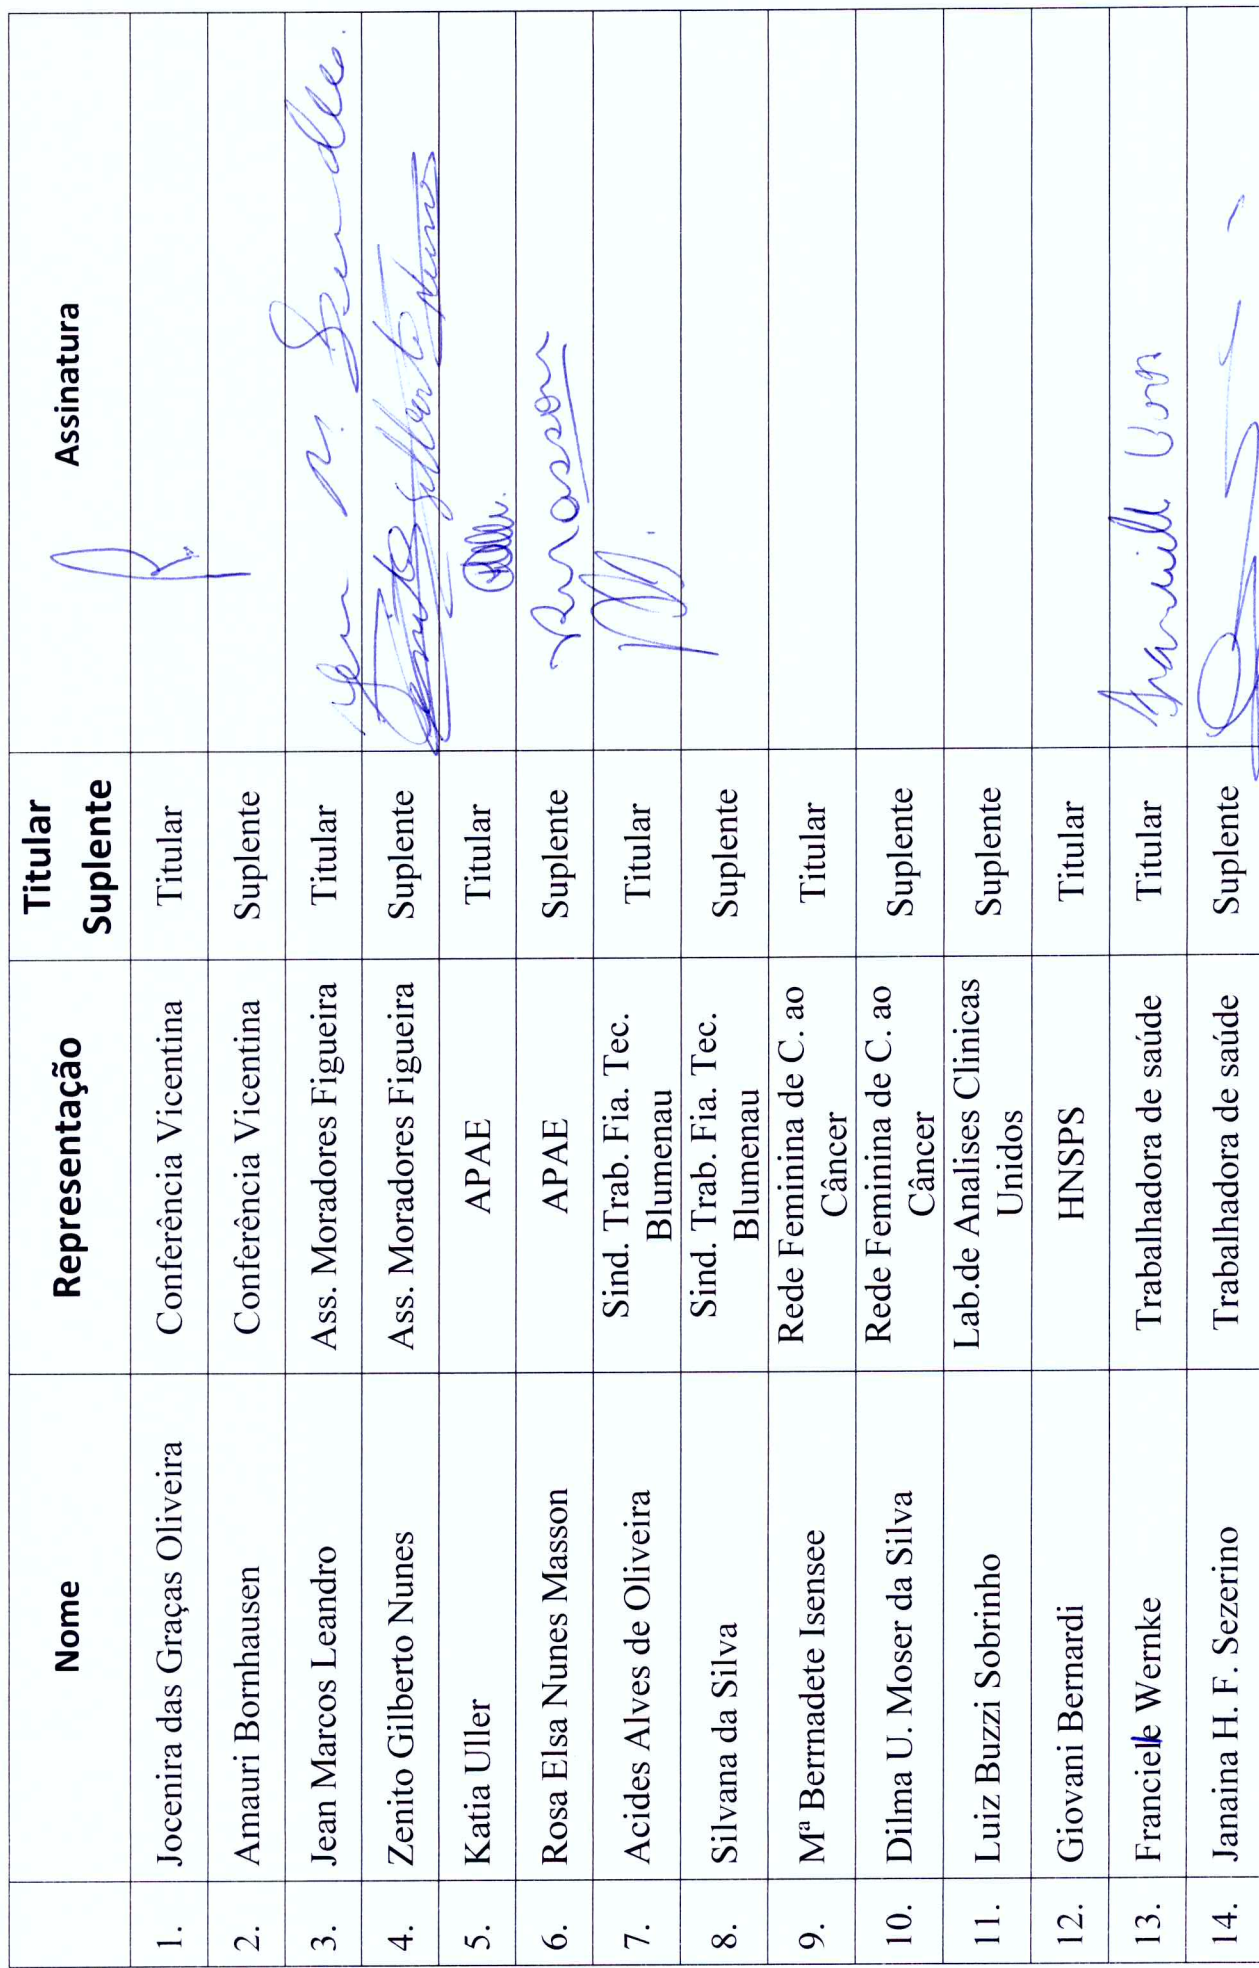 Nome Representação Titular Suplente Assinatura
1. Jocenira das Graças Oliveira Conferência Vicentina Titular
2. Amauri Bornhausen Conferência Vicentina Suplente
3. Jean Marcos Leandro Ass. Moradores Figueira Titular Jean M. Leandro.
4. Zenito Gilberto Nunes Ass. Moradores Figueira Suplente Zenito Gilberto Nunes
5. Katia Uller APAE Titular
6. Rosa Elsa Nunes Masson APAE Suplente
7. Acides Alves de Oliveira Sind. Trab. Fia. Tec. Blumenau Titular
8. Silvana da Silva Sind. Trab. Fia. Tec. Blumenau Suplente
9. Mª Berrnadete Isensee Rede Feminina de C. ao Câncer Titular
10. Dilma U. Moser da Silva Rede Feminina de C. ao Câncer Suplente
11. Luiz Buzzi Sobrinho Lab.de Analises Clinicas Unidos Suplente
12. Giovani Bernardi HNSPS Titular
13. Franciele Wernke Trabalhadora de saúde Titular
14. Janaina H. F. Sezerino Trabalhadora de saúde Suplente